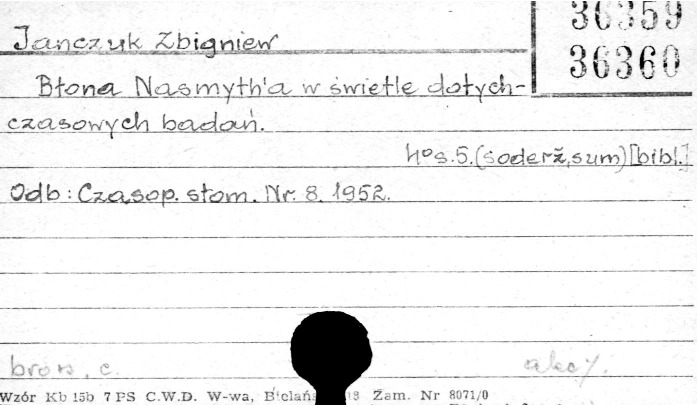 36359
Janczuk Zbigniew
36360
Błona Nasmyth'a w świetle dotych-
czasowych badań.
4° s.5.(soderž,sum)[bibl.]
Odb: Czasop. stom. Nr. 8. 1952.
brosz. c.
akc/.
Wzór Kb 15b 7 PS C.W.D. W-wa, Zam. Nr 8071/0